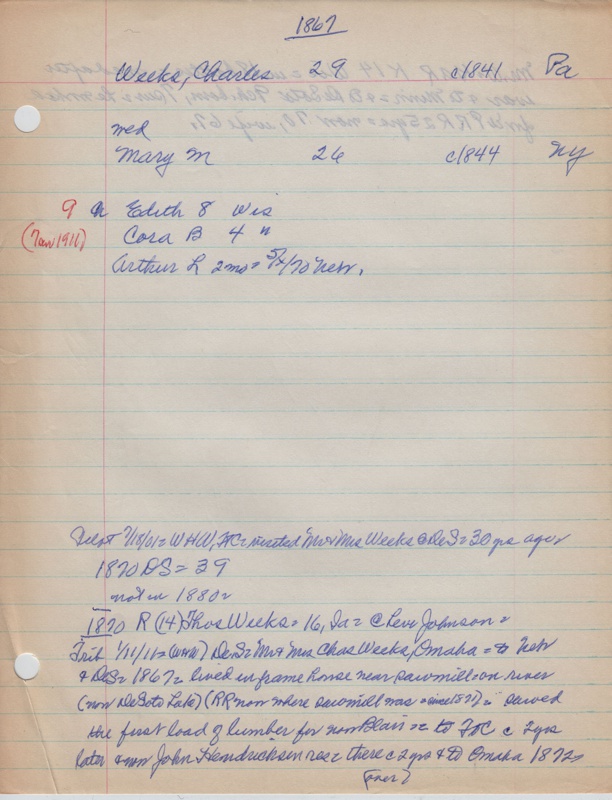 1867
Weeks, Charles 29 c1841 Pa
med
Mary M 26 c1844 NY
9 ch Edith 8 Wis
(Jan 1911) Cora B 4 "
Arthur L 2mo = 5/4/70 Neb.
7/18/01 = WHW, FTC = visited "Mr & Mrs Weeks @ DeS = 30 yrs ago"
1870 DS = 39
not in 1880 =
1870 R (14) Thos Weeks = 16, Ia = c Levi Johnson =
Trib 1/11/11 = (WHW) DeS = "Mr & Mrs Chas Weeks, Omaha = to Neb
& DeS = 1867 = lived in frame house near sawmill on river
(now DeSoto Lake) (RR now where sawmill was = ) = sawed
the first load of lumber for now Blair = to FtC c 2 yrs
later & now John Hendricksen res = there c 2 yrs & to Omaha 1872 =
(over)